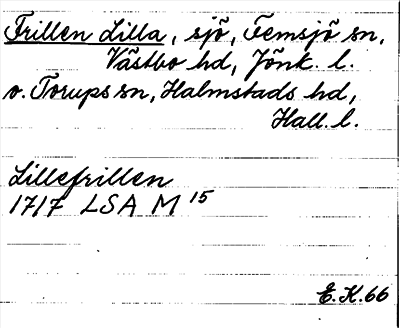 Frillen Lilla, sjö, Femsjö sn,
Västbo hd, Jönk. l.
o. Torups sn, Halmstads hd,
Hall. l.
Lillefrillen
1717 LSA M 15
E.K.66